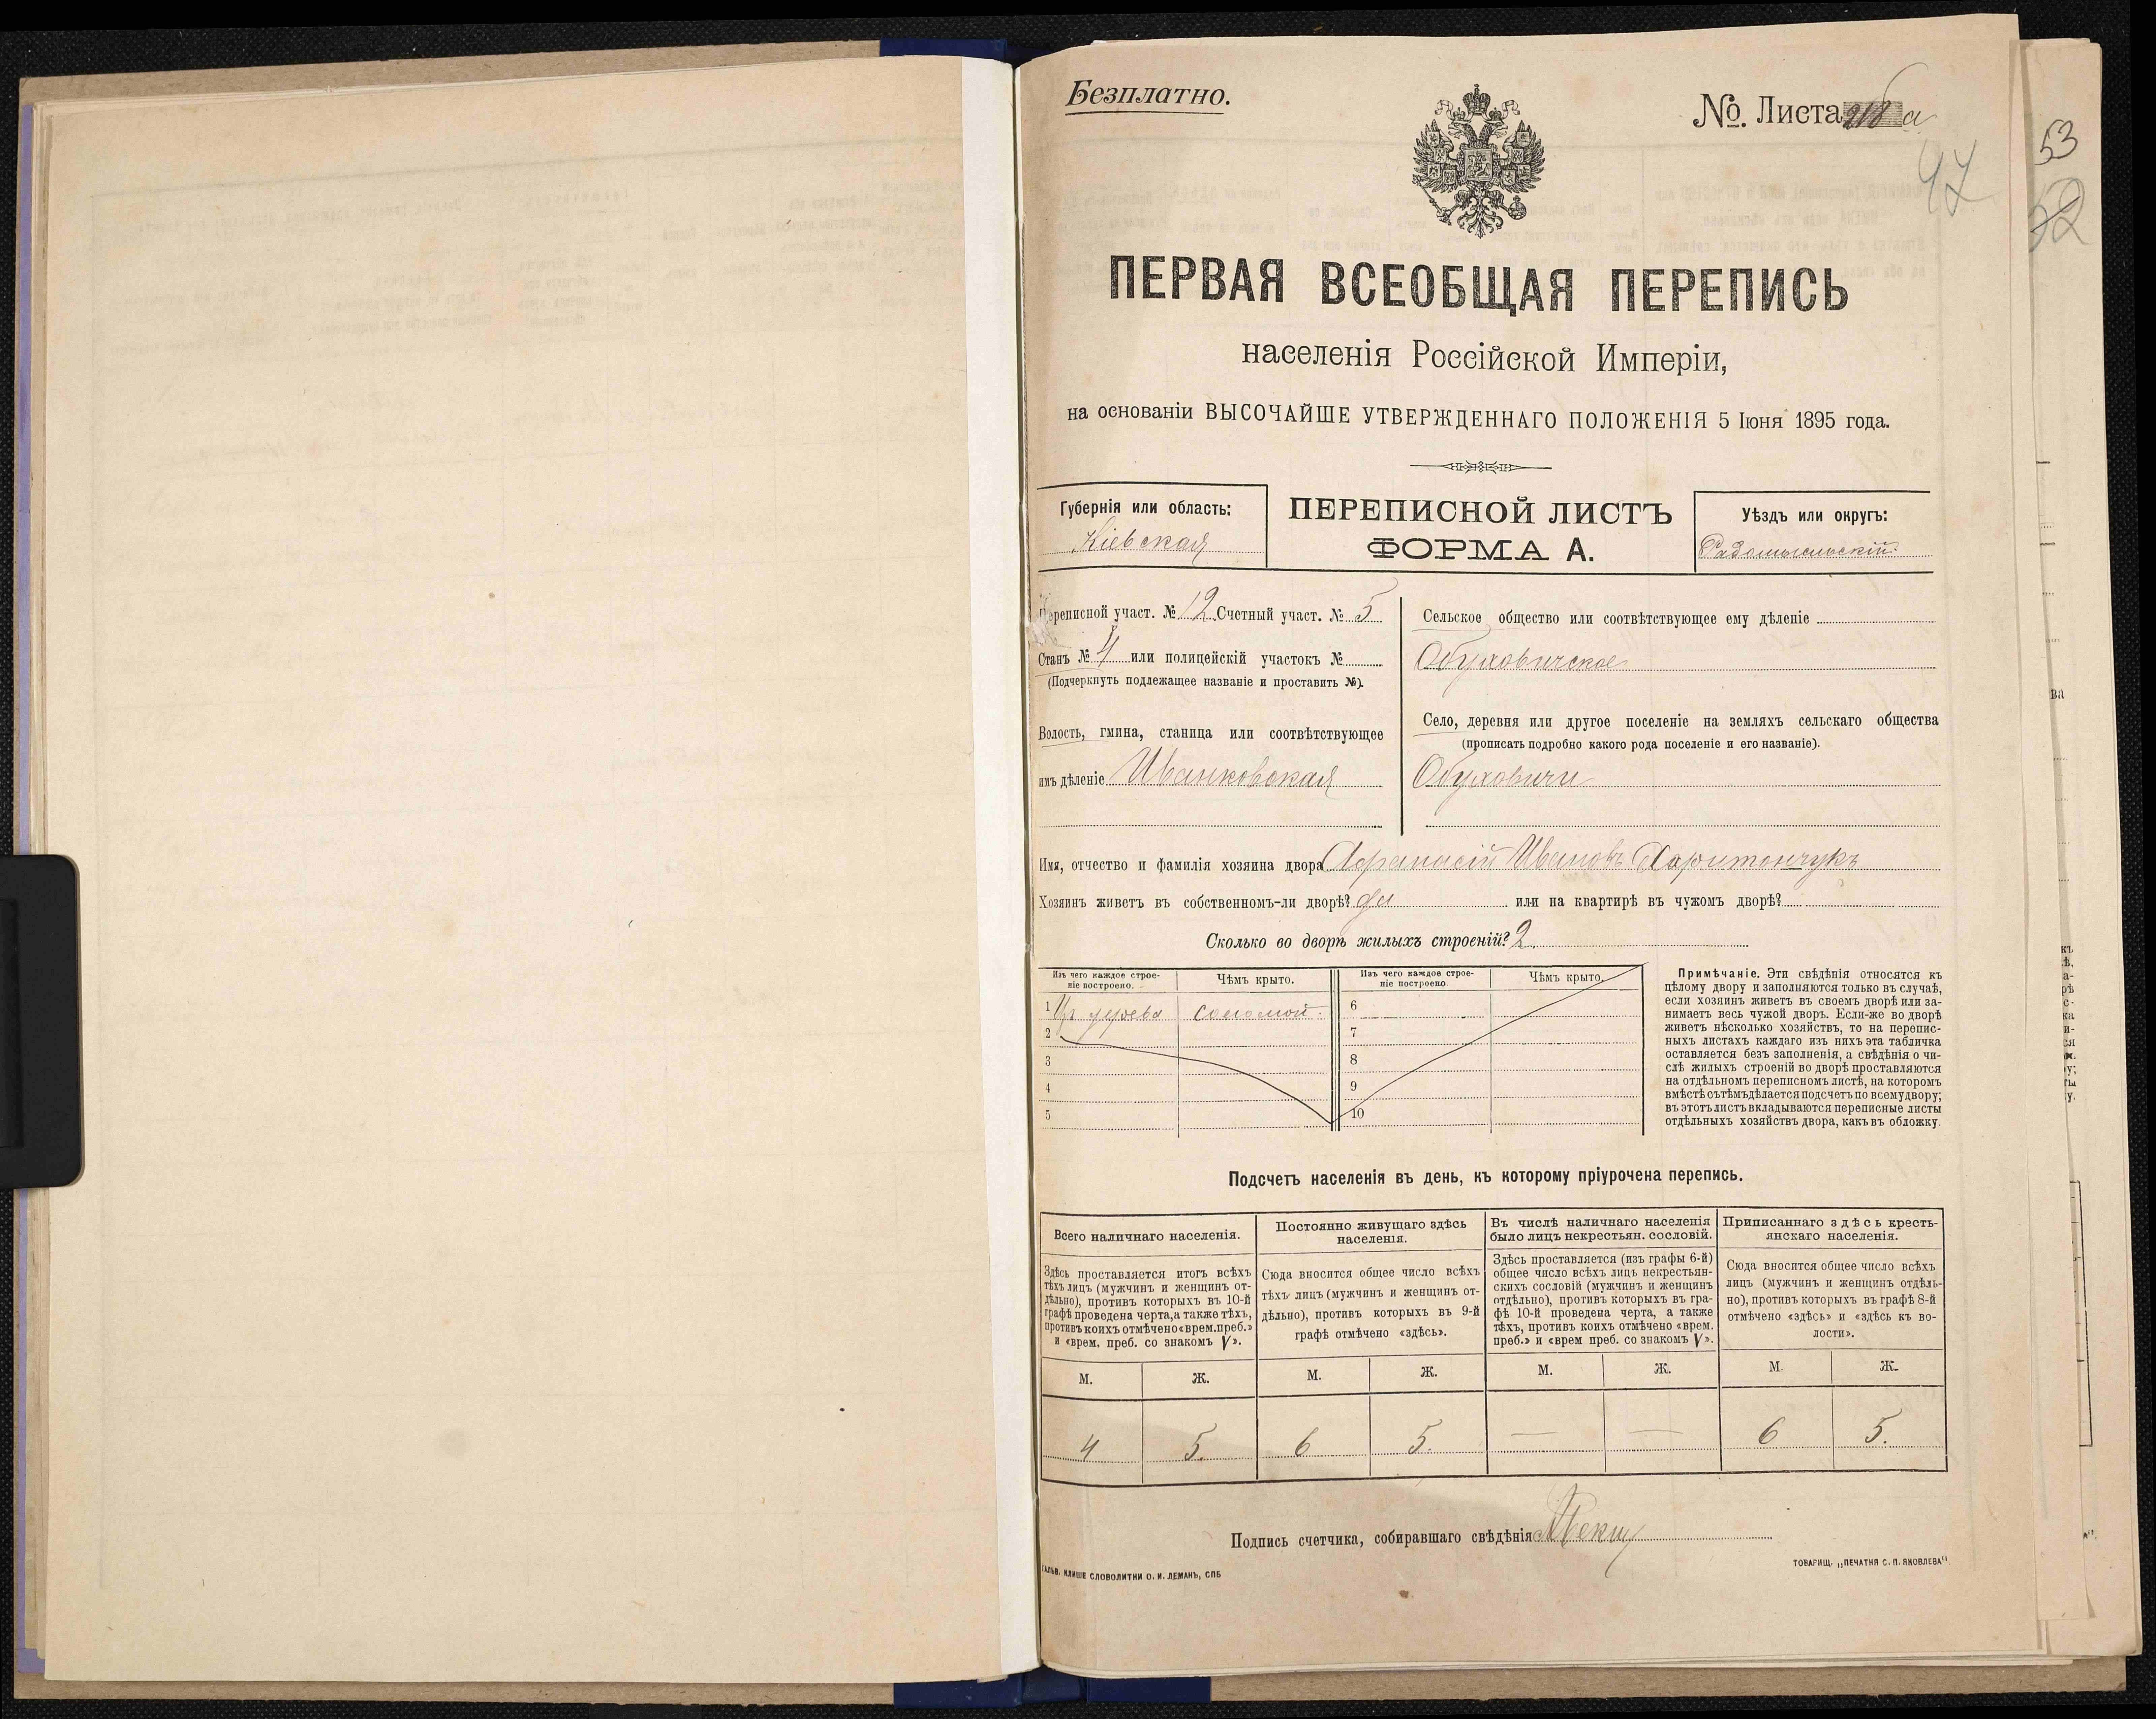 Безплатно.
No. Листа 218 а
47
53
52
ПЕРВАЯ ВСЕОБЩАЯ ПЕРЕПИСЬ
населенія Россійской Имперіи,
на основаніи ВЫСОЧАЙШЕ УТВЕРЖДЕННАГО ПОЛОЖЕНІЯ 5 Іюня 1895 года.
Губернія или область:
Кіевская
ПЕРЕПИСНОЙ ЛИСТЪ
ФОРМА А.
Уѣздъ или округъ:
Радомысльскій
Переписной участ. № 12 Счетный участ. № 5
Станъ № 4 или полицейскій участокъ №
(Подчеркнуть подлежащее названіе и проставить №).
Волость, гмина, станица или соотвѣтствующее
имъ дѣленіе Иванковская
Сельское общество или соотвѣтствующее ему дѣленіе
Обуховичское
Село, деревня или другое поселеніе на земляхъ сельскаго общества
(прописать подробно какого рода поселеніе и его названіе).
Обуховичи
Имя, отчество и фамилія хозяина двора Афанасій Ивановъ Харитончукъ
Хозяинъ живетъ въ собственномъ-ли дворѣ? да или на квартирѣ въ чужомъ дворѣ?
Сколько во дворѣ жилыхъ строеній? 2
Изъ чего каждое строе-
ніе построено.
Чѣмъ крыто.
Изъ чего каждое строе-
ніе построено
Чѣмъ крыто.
1 Изъ дерева соломой. 6
2 7
3 8
4 9
5 10
Примѣчаніе. Эти свѣдѣнія относятся къ
цѣлому двору и заполняются только въ случаѣ,
если хозяинъ живетъ въ своемъ дворѣ или за-
нимаетъ весь чужой дворъ. Если-же во дворѣ
живетъ нѣсколько хозяйствъ, то на перепис-
ныхъ листахъ каждаго изъ нихъ эта табличка
оставляется безъ заполненія, а свѣдѣнія о чи-
слѣ жилыхъ строеній во дворѣ проставляются
на отдѣльномъ переписномъ листѣ, на которомъ
вмѣстѣ сътѣмъ дѣлается подсчетъ по всему двору;
въ этотъ листъ вкладываются переписные листы
отдѣльныхъ хозяйствъ двора, какъ въ обложку.
Подсчетъ населенія въ день, къ которому пріурочена перепись.
Всего наличнаго населенія.
Здѣсь проставляется итогъ всѣхъ
тѣхъ лицъ (мужчинъ и женщинъ от-
дѣльно), противъ которыхъ въ 10-й
графѣ проведена черта, а также тѣхъ,
противъ коихъ отмѣчено «врем. преб.»
и «врем. преб. со знакомъ V».
Постоянно живущаго здѣсь
населенія.
Сюда вносится общее число всѣхъ
тѣхъ лицъ (мужчинъ и женщинъ от-
дѣльно), противъ которыхъ въ 9-й
графѣ отмѣчено «здѣсь».
Въ числѣ наличнаго населенія
было лицъ некрестьян. сословій.
Здѣсь проставляется (изъ графы 6-й)
общее число всѣхъ лицъ некрестьян-
скихъ сословій (мужчинъ и женщинъ
отдѣльно), противъ которыхъ въ гра-
фѣ 10-й проведена черта, а также
тѣхъ, противъ коихъ отмѣчено «врем.
преб.» и «врем преб. со знакомъ V».
Приписаннаго здѣсь кресть-
янскаго населенія.
Сюда вносится общее число всѣхъ
лицъ (мужчинъ и женщинъ отдѣль-
но), противъ которыхъ въ графѣ 8-й
отмѣчено «здѣсь» и «здѣсь къ во-
лости».
М. Ж. М. Ж. М. Ж. М. Ж.
4 5. 6 5. — — 6 5.
Подпись счетчика, собиравшаго свѣдѣнія
ГАЛЬВ. КЛИШЕ СЛОВОЛИТНИ О. И. ЛЕМАНЪ, СПБ
ТОВАРИЩ. „ПЕЧАТНЯ С. П. ЯКОВЛЕВА“